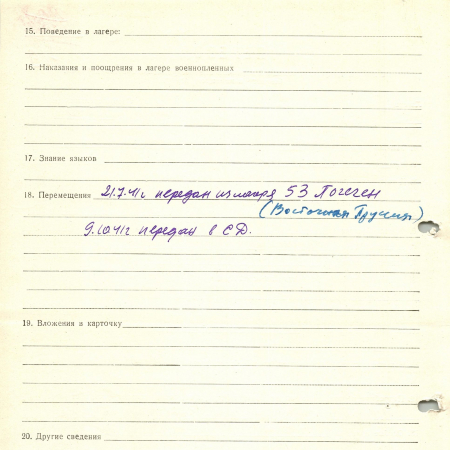 15. Поведение в лагере:
16. Наказания и поощрения в лагере военнопленных
17. Знание языков
18. Перемещения 21.7.41г передан из лагеря 53 Погеген
(Восточная Пруссия)
9.10.41г передан в СД.
19. Вложения в карточку
20. Другие сведения